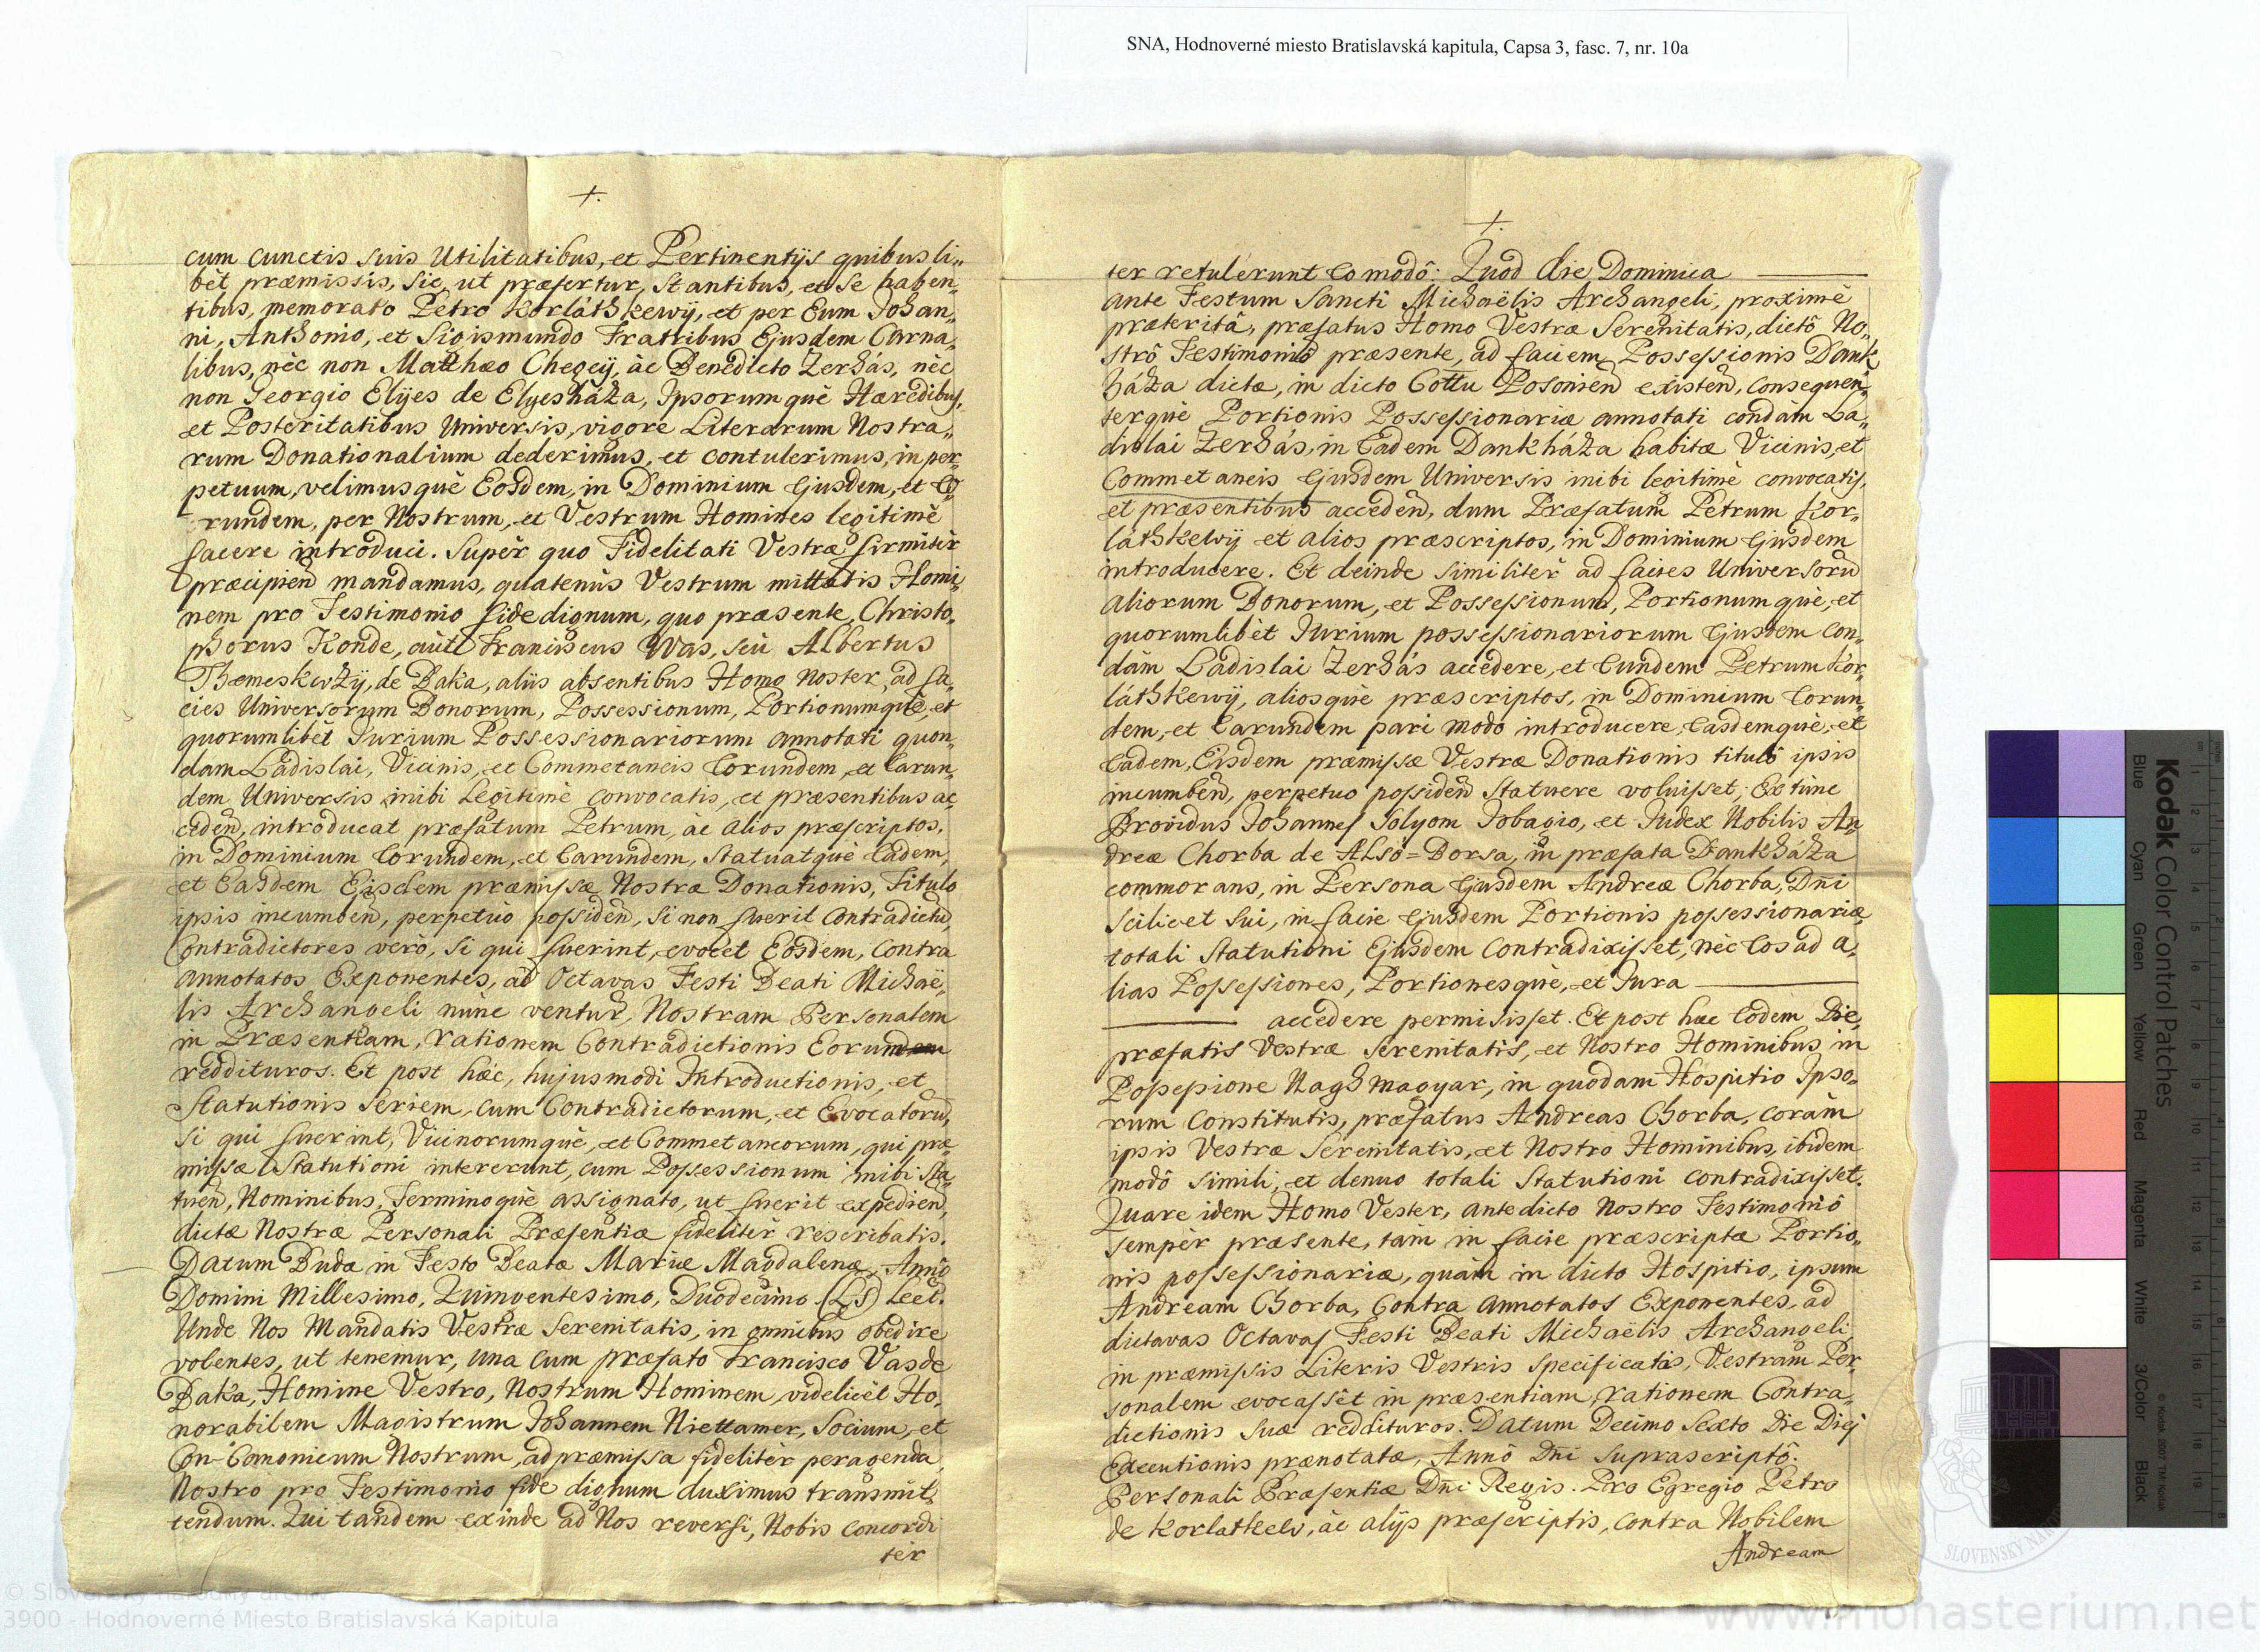 SNA, Hodnoverné miesto Bratislavská kapitula, Capsa 3, fasc. 7, nr. 10a
cum cunctis suis Utilitatibus, et Pertinentijs quibusli„
bèt præmissis, sic, ut præfertur, stantibus, et se haben„
tibus, memorato Petro Korláthkewij, et per Eum Johan„
ni, Anthonio, et Sigismundo Fratribus Ejusdem Carna„
libus, nèc non Matthæo Chegeij, àc Benedicto Zerhás, nèc
non Georgio Elijes de Elyesháza, Ipsorumquè Hæredibus,
et Posteritatibus Universis, vigore Literarum Nostra„
rum Donationalium dederimus, et contulerimus, in per„
petuum, velimusquè Eosdem, in Dominium Ejusdem, et Eo„
rundem, per Nostrum, et Vestrum Homines legitimè
facere introduci. Supèr quo Fidelitati Vestræ firmitèr
præcipiend mandamus, quatenùs Vestrum mittatis Homi„
nem pro Testimonio fidedignum, quo præsente, Christo„
phorus Konde, aùt Franciscus Was, seù Albertus
Themeskwzij, de Baka, aliis absentibus Homo Noster, ad fa„
cies Universorum Bonorum, Possessionum, Portionumquè, et
quorumlibèt Jurium Possessionariorum annotati quon„
dam Ladislai, Vicinis, et Commetaneis Eorundem, et Earun„
dem Universis inibi Legitimè convocatis, et præsentibus ac„
ceden, introducat præfatum Petrum, àc alios præscriptos,
in Dominium Eorundem, et Earundem, statuatquè Eadem,
et Easdem Eisdem præmissæ Nostræ Donationis, Titulo
ipsis incumben, perpetuò possiden, si non fuerit Contradictu,
Contradictores verò, si qui fuerint, evocet Eosdem, contra
annotatos Exponentes, ad Octavas Festi Beati Michaë„
lis Archangeli nunc ventur, Nostram Personalem
in Præsentiam, rationem Contradictionis Eorundem
reddituros. Et post hæc, hujusmodi Introductionis, et
Statutionis seriem, cum Contradictorum, et Evocatoru,
si qui fuerint, Vicinorumquè, et Commetaneorum, qui præ„
missæ Statutioni intererunt, cum Possessionum inibi sta„
tuen, Nominibus, Terminoquè assignato, ut fuerit expedien,
dictæ Nostræ Personali Præsentiæ fidelitèr rescribatis.
Datum Budæ in Festo Beatæ Mariæ Magdalenæ, Annô
Domini Millesimo, Quinventesimo, Duodecimo (LS) Lect.
Unde Nos Mandatis Vestræ Serenitatis, in omnibus obedire
volentes, ut tenemur, una cum præfato Francisco Vas de
Baka, Homine Vestro, Nostrum Hominem, videlicèt Ho„
norabilem Magistrum Johannem Niettamer, Socium, et
Con-Canonicum Nostrum, ad præmissa fidelitèr peragenda,
Nostro pro Testimonio fide dignum duximus transmit„
tendum. Qui tandem exinde ad Nos reversi, Nobis concordi
tèr
ter retulèrunt Eo modô: Quod die Dominica
ante Festum Sancti Michaëlis Archangeli, proximè
præteritâ, præfatus Homo Vestræ Serenitatis, dictô No„
strô Testimoniô præsente, ad faciem Possessionis Dank
háza dictæ, in dicto Cottu Posonien existen, consequen„
terquè Portionis Possessionariæ annotati condàm La„
dislai Zerhás, in Eadem Dankháza habitæ Vicinis, et
Commetaneis Ejusdem Universis inibi legitimè convocatis,
et præsentibus acceden, dum Præfatum Petrum Kor„
láthkewij et alios præscriptos, in Dominium Ejusdem
introducere. Et deinde similitèr ad facies Universoru
aliorum Bonorum, et Possessionum, Portionumquè, et
quorumlibèt Jurium possessionariorum Ejusdem con„
dàm Ladislai Zerhás accedere, et Eundem Petrum Kor„
láthkewij, aliosquè præscriptos, in Dominium Eorun„
dem, et Earundem pari modo introducere, Easdemquè, et
Eadem, Eisdem præmissæ Vestræ Donationis titulô ipsis
incumben, perpetuo possiden Statuere voluisset; Extunc
Providus Johannes Solyom Jobagio, et Judex Nobilis An„
dreæ Chorba de Alsò=Borsa, in præfata Dankháza
commorans, in Persona Ejusdem Andreæ Chorba, Dni
scilicet sui, in facie Ejusdem Portionis possessionariæ
totali Statutioni Ejusdem contradixisset, nèc Eos ad a„
lias Possessiones, Portionesquè, et Jura
accedere permisisset. Et post hæc Eodem Die,
præfatis Vestræ Serenitatis, et Nostro Hominibus in
Possessione Naghmagyar, in quodam Hospitio Ipso„
rum Constitutis, præfatus Andreas Chorba, coràm
ipsis Vestræ Serenitatis, et Nostro Hominibus, ibidem
modô simili, et denuo totali Statutioni contradixisset.
Quare idem Homo Vester, antedicto Nostro Testimoniô
sempèr præsente, tàm in facie præscriptæ Portio„
nis possessionariæ, quàm in dicto Hospitio, ipsum
Andream Chorba, contra annotatos Exponentes, ad
dictavas Octavas Festi Beati Michaëlis Archangeli
in præmissis Literis Vestris specificatas, Vestram Per„
sonalem evocassèt in præsentiam, rationem Contra„
dictionis suæ reddituros. Datum Decimo Sexto Die Diej
Executionis prænotatæ, Annô Dni suprascriptô.
Personali Præsentiæ Dni Regis. Pro Egregio Petro
de Korlatkelv, àc alijs præscriptis, contra Nobilem
Andream
Kodak Color Control Patches
Blue Cyan Green Yellow Red Magenta White 3/Color Black
© Slovenský národný archív
3900 - Hodnoverné Miesto Bratislavská Kapitula
www.monasterium.net